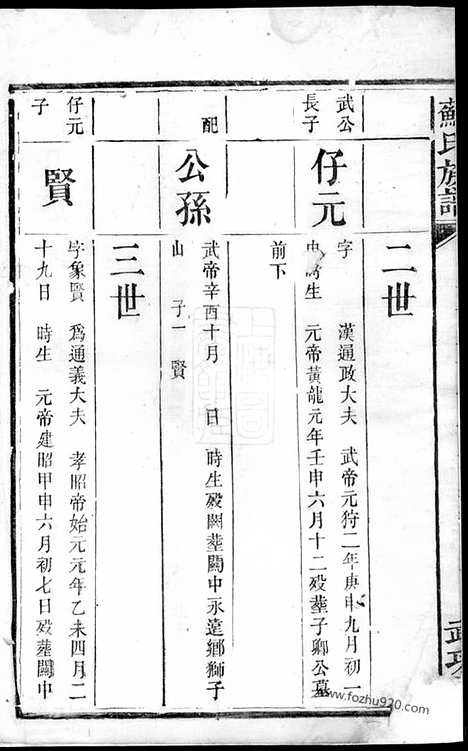 蘇氏族譜
武功
二世
武公
長子
仔元
字 漢通政大夫 武帝元狩二年庚申九月初一
時生 元帝黃龍元年壬申六月十二歿葬子卿公墓
前下
配
公孫
武帝辛酉十月 日 時生歿闕葬關中永遠鄉獅子
山 子一 賢
三世
仔元
子
賢
字象賢 爲通義大夫 孝昭帝始元元年乙未四月二
十九日 時生 元帝建昭甲申六月初七日歿葬關中
www.fozhu920.com